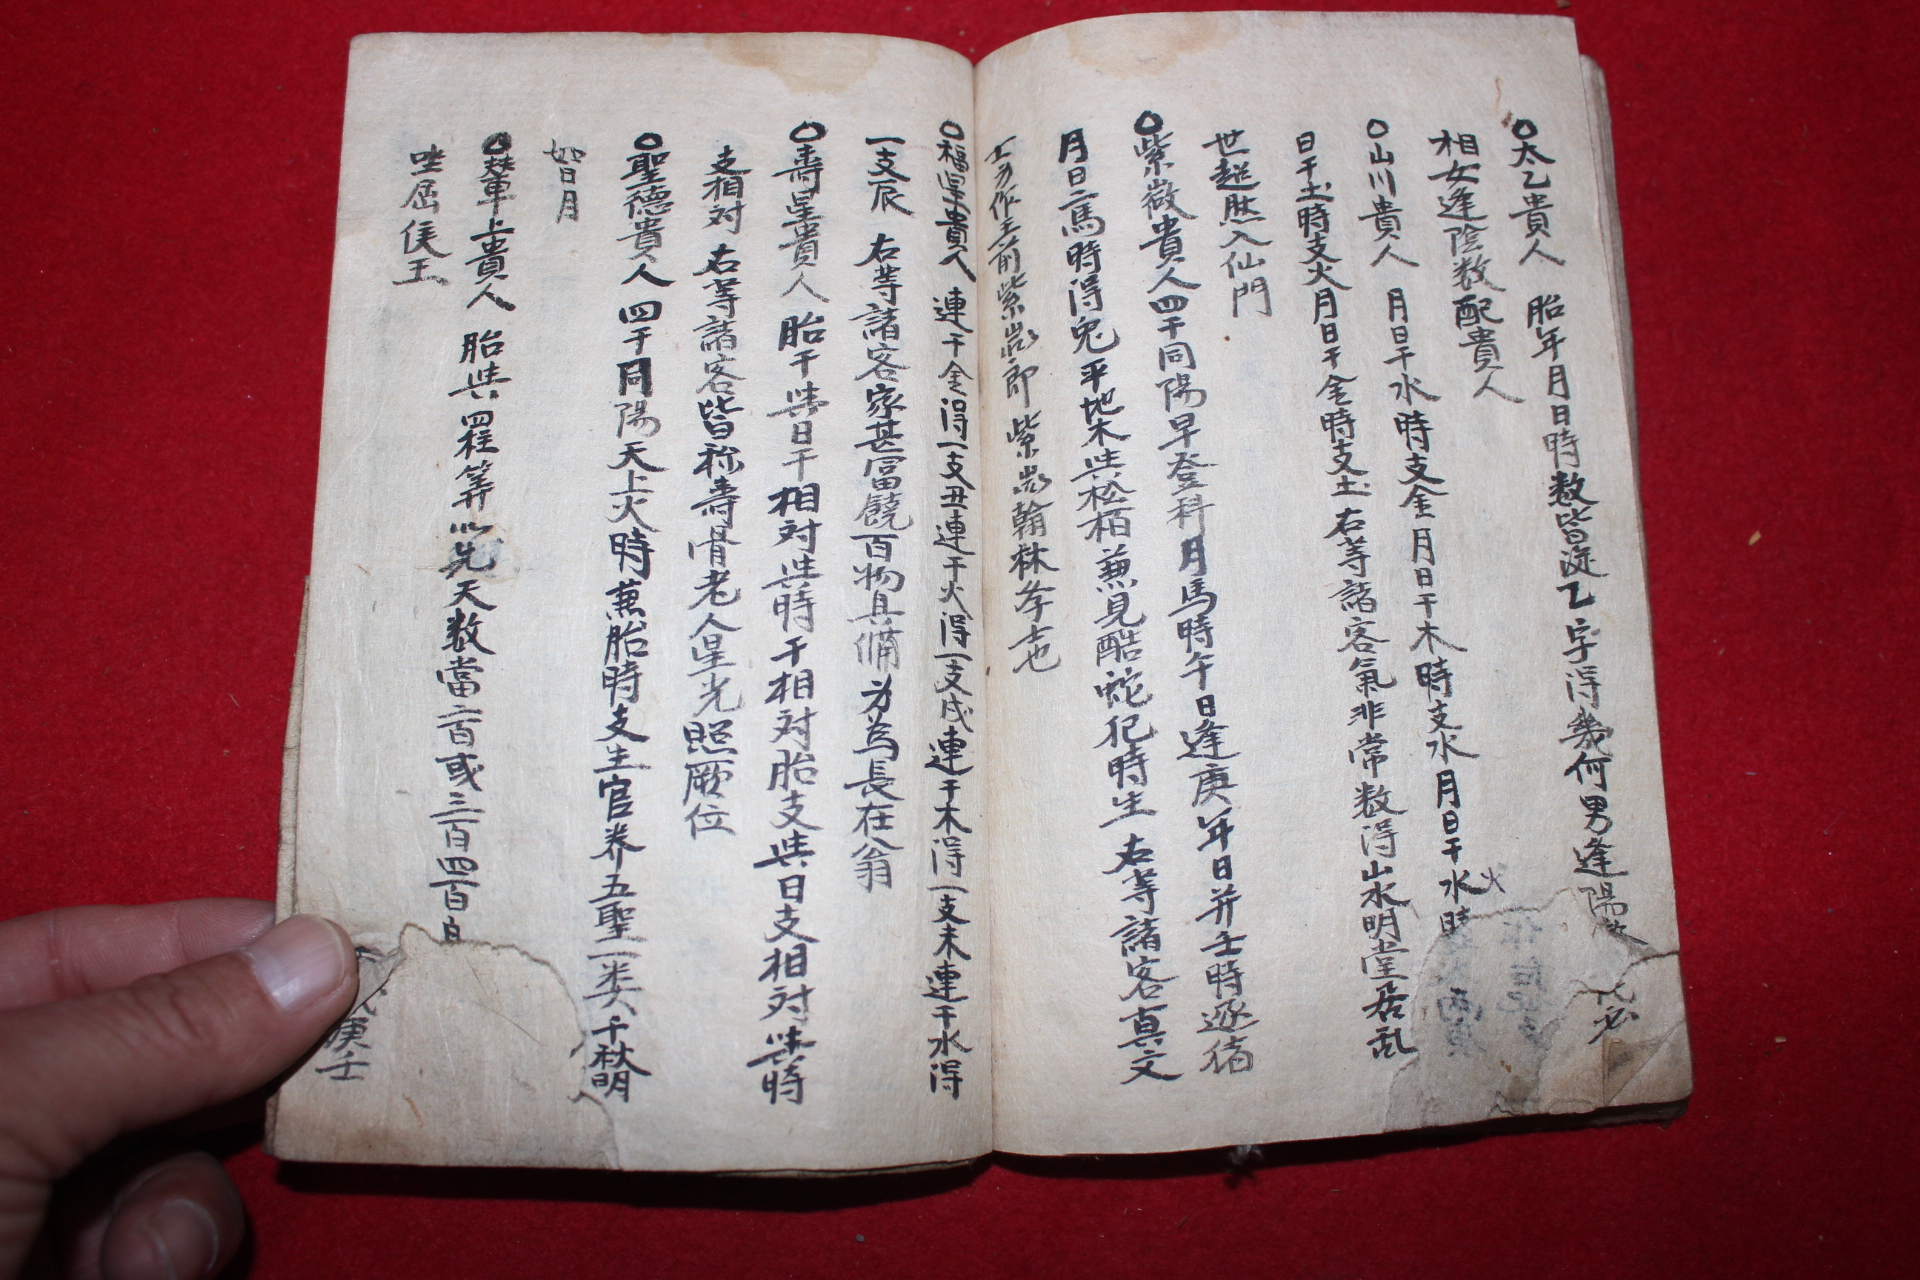 〇太乙貴人 胎年月日時数皆逆乙字得幾何男逢陽
相女逢陰数配貴人
〇山川貴人 月日干水時支金月日干木時支水月日干水時
火
日干土時支火月日干金時支土 右等諸客氣非常数得山水明堂居乱
世超然入仙門
〇紫微貴人四干同陽早登科月馬時午日逢庚年日并壬時逐猪
月日二馬時得兔平地木与松栢兼見酷蛇犯時生 右等諸客真文
郎 紫 翰林李士也
〇福星貴人 連干金得一支丑連干火得一支戌連干木得一支未連干水得
一支辰 右等諸客家甚冨饒百物具備力為長在翁
〇壽星貴人胎干与日干相対与時干相対胎支与日支相対与時
支相対 右等諸客皆称壽骨老人星光照厥位
〇聖德貴人 四干同陽天上火時兼胎時支生官养五聖一类千秋明
如日月
〇輦上貴人 胎与四柱筭以先天数當二百或三百四百
戊庚壬
坐屈侯王